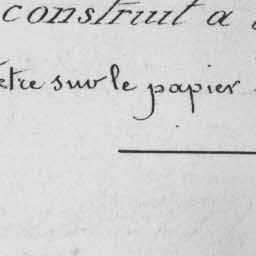 construit a
être sur le papier